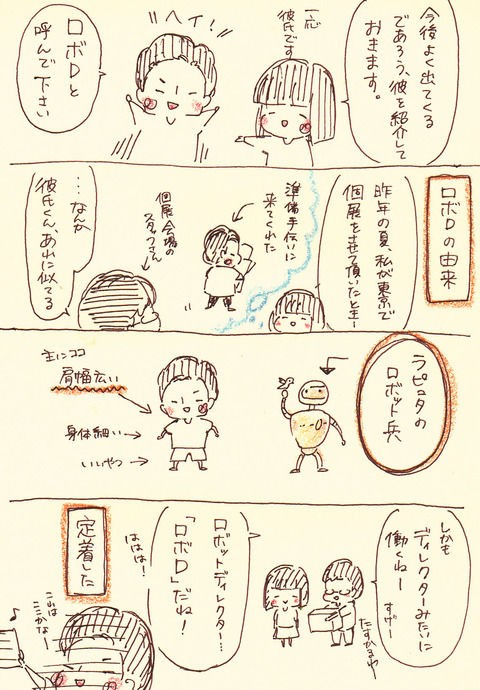 今後よく出てくる
であろう、彼を紹介して
おきます。
一応
彼氏です
ヘイ!
ロボDと
呼んで下さい
ロボDの由来
昨年の夏、私が東京で
個展をさせて頂いたとき
準備手伝いに
来てくれた
個展会場の
スタッフさん
…なんか
彼氏くん、あれに似てる
ラピュタの
ロボット兵
主にココ
肩幅広い
身体細い→
いいやつ→
しかも
ディレクターみたいに
働くねー
すげー
たすかるわー
ロボットディレクター…
「ロボD」だね!
ははは!
定着した
これは
ここかなー